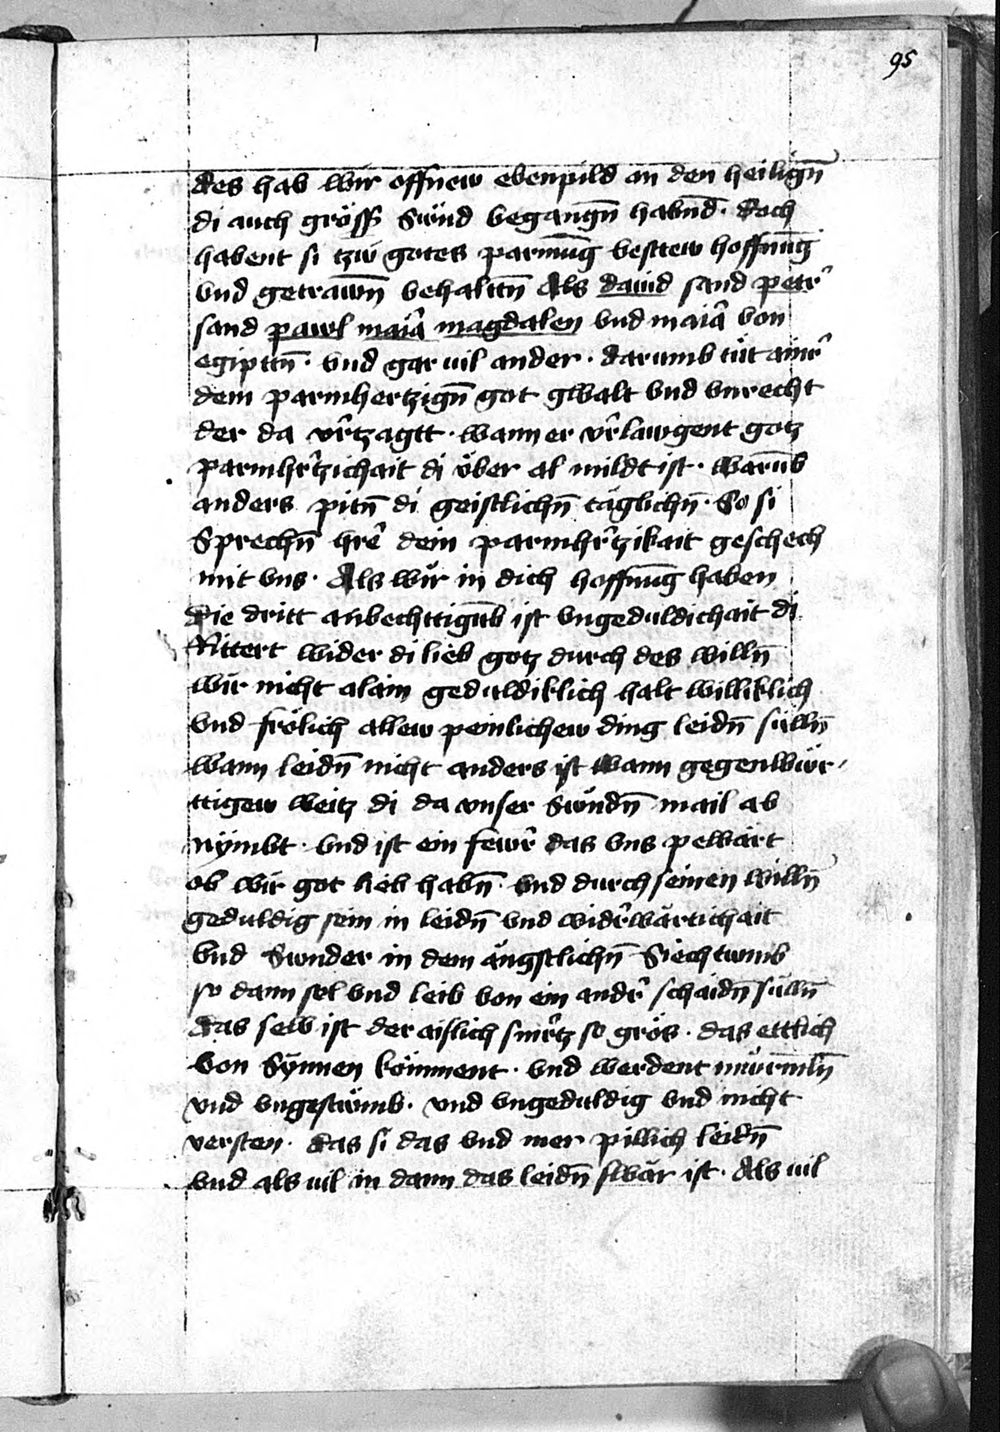 95
des hab wir offnew ebenpild an den heilign̄
di auch gröss Sünd begangn̄ habn̄d · doch
habent si tzw gotes parmūg vesttew hoffnūg
vnd getrawn̄ behaltn̄ Als dauid sand petr̄
sand pawl maiā magdalen vnd maiā von
egipttn̄ · vnd gar uil ander · darumb tüt ainr̄
dem parmhertzign̄ got gwalt vnd vnrecht
der da vr̄tzagtt · wann er vr̄lawgent gotz
parmhr̄tzichait di über al mildt ist · warūb
anders pitn̄ di geistlichn̄ täglichn̄ · So si
Sprechn̄ hr̄e dein parmhr̄tzikait geschech
mit vns · Als wür in dich hoffnūg haben
Die dritt anvechttigūb ist vngeduldichait di
Rittert wider di lieb gotz durch des willn̄
wür nicht alain geduldiklich halt williklich
vnd frölich allew peinlichew ding leidn̄ sülln̄
wann leidn̄ nicht anders ist wann gegenwür
ttigew weitz di da vnser Sündn̄ mail ab
nÿmbt · vnd ist ein fewr̄ das vns pewärt
ob wir got lieb habn̄ vnd durch seinen willn̄
geduldig sein in leidn̄ vnd widr̄wärtichait
vnd Swnder in dem ängstlichn̄ Siechtwmb
so dann sel vnd leib von ein andr̄ schaidn̄ sülln̄
das selb ist der aislich smr̄tz so grös · das ettlich
von Sÿnnen kömment · vnd werdent mürmln̄
vnd vngestwmb · vnd vngeduldig vnd nicht
versten · das si das vnd mer pillich leidn̄
vnd als uil in dann das leidn̄ swär ist · Als uil